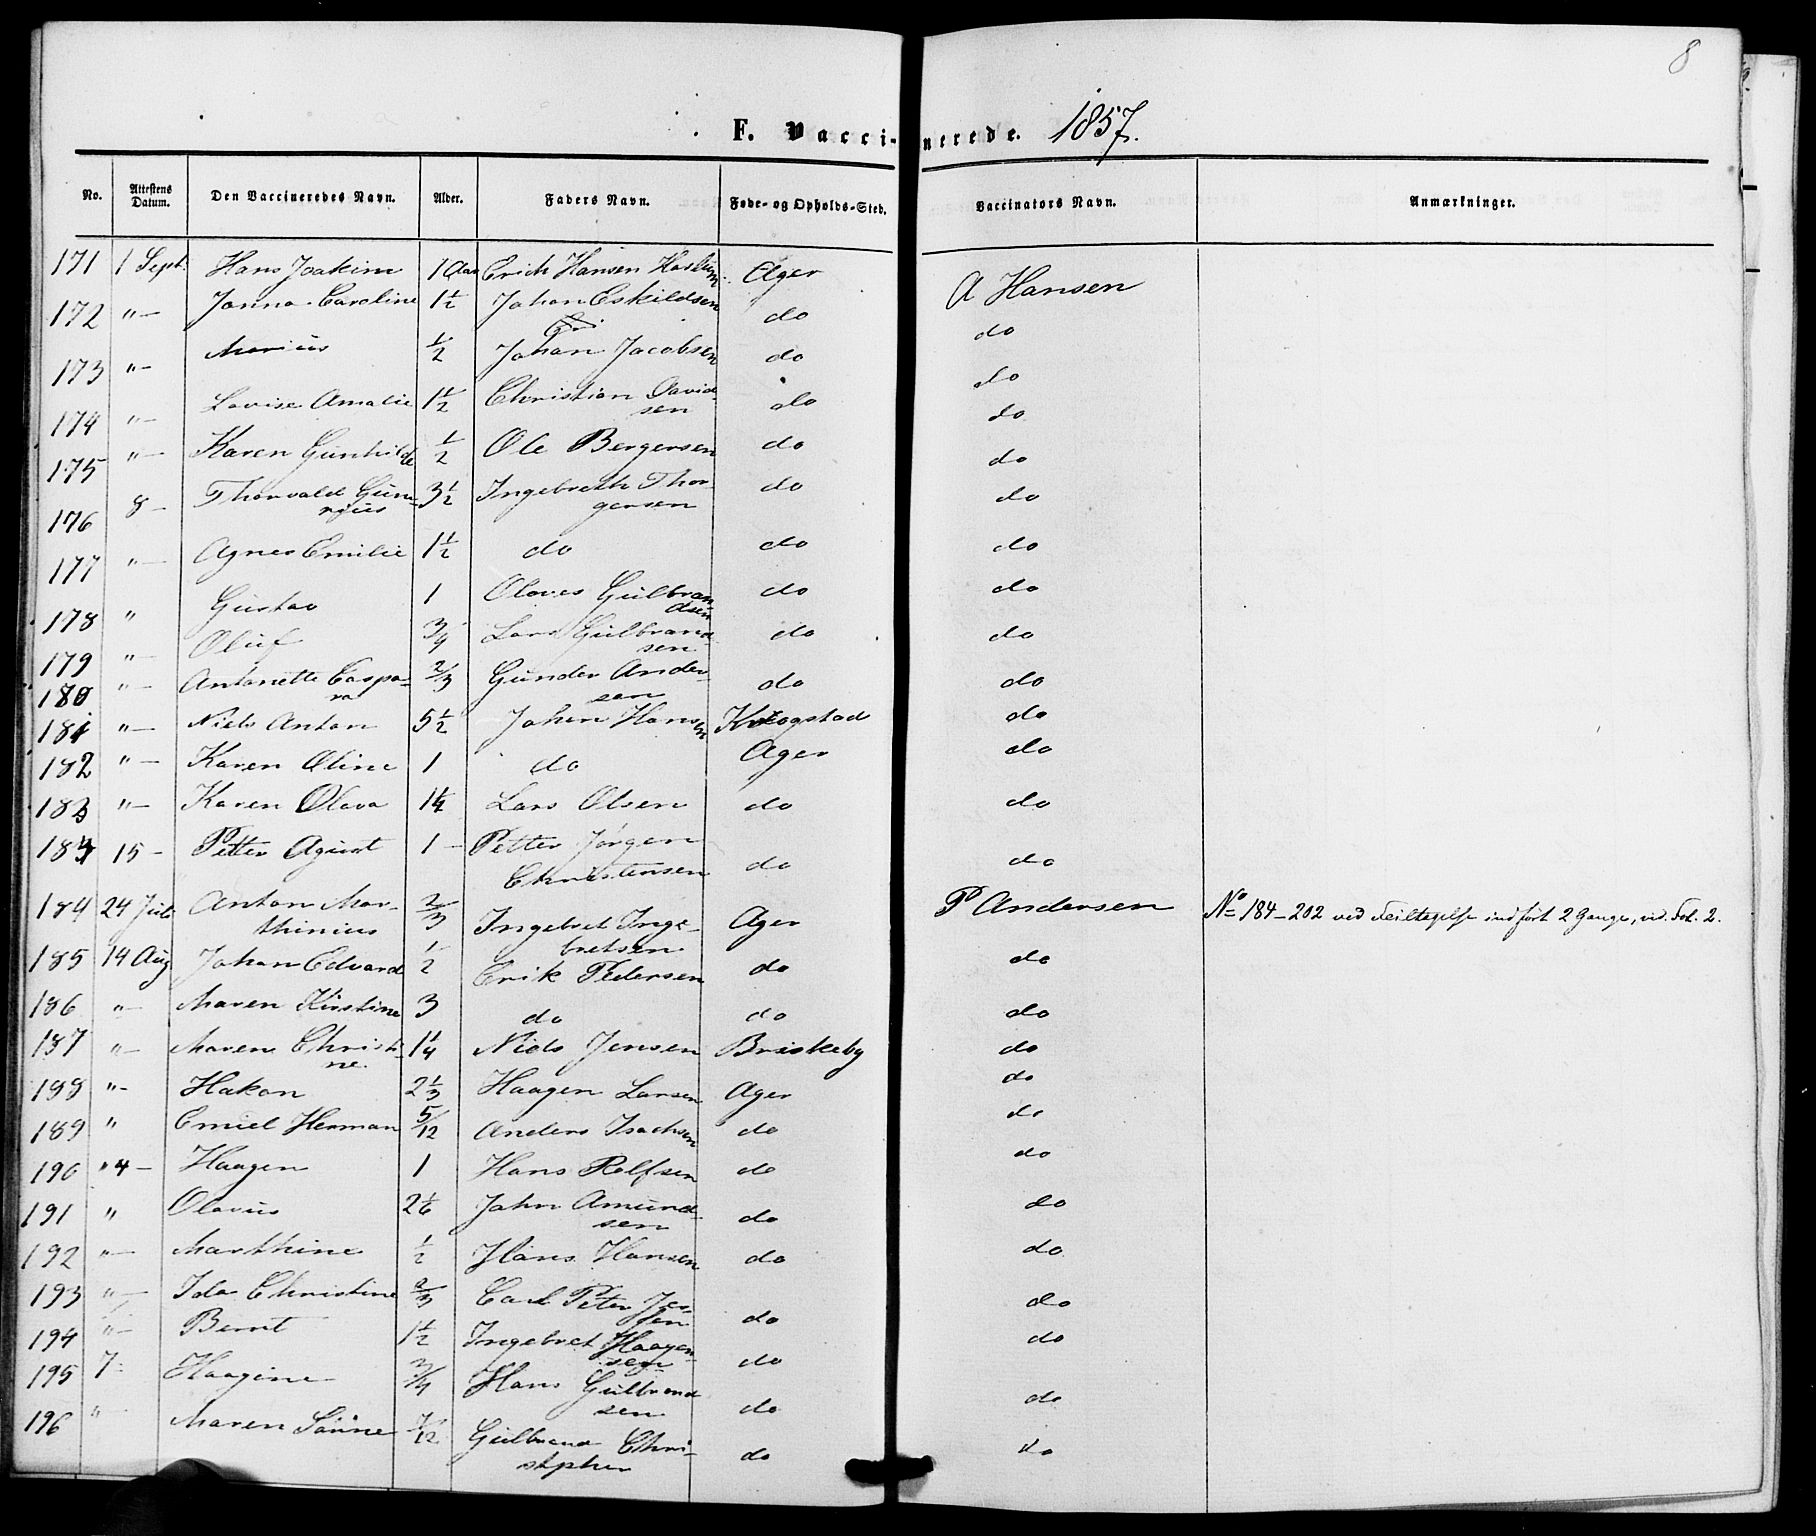 8
F. Vaccinerede. 1857.
No. | Attestens Datum. | Den Vaccineredes Navn. | Alder. | Faders Navn. | Føde- og Opholds-Sted. | Vaccinators Navn. | Anmærkninger.
171 | 1 Sept. | Hans Joakim | 1 Aar | Erich Hansen Haslum | Ager | A Hansen
172 | "— | Janna Caroline | 1½ | Johan Eskildsen | do | do
173 | "— | Marius | ½ | Johan Jacobsen | do | do
174 | "— | Lovise Amalie | 1½ | Christian David-
sen | do | do
175 | "— | Karen Gunhilde | ½ | Ole Bergersen | do | do
176 | 8 — | Thorvald Gun-
erius | 3½ | Ingebreth Thor-
gersen | do | do
177 | "— | Agnes Emilie | 1½ | do | do | do
178 | " | Gustav | 1 | Olaves Gulbran-
dsen | do | do
179 | "— | Oluf | 3/4 | Lars Gulbrand-
sen | do | do
180 | "— | Antonette Caspa-
ra | 2/3 | Gunder Ander-
sen | do | do
181 | "— | Niels Anton | 5½ | Johan Hansen | Krogstad | do
182 | "— | Karen Oline | 1 | do | Ager | do
183 | "— | Karen Olava | 1¼ | Lars Olsen | do | do
184 | 15 — | Petter Agust | 1 — | Petter Jørgen
Christensen | do | do
184 | 24 Juli | Anton Mar-
thinius | 2/3 | Ingebret Inge-
bretsen | Ager | P Andersen | No 184–202 ved Feiltagelse indført 2 Gange, vid. Fol. 2.
185 | 14 Aug | Johan Edvard | ½ | Erik Pedersen | do | do
186 | "— | Maren Kirstine | 3 | do | do | do
187 | "— | Maren Christi-
ne. | 1¼ | Niels Jensen | Briskeby | do
188 | "- | Hakon | 2⅓ | Haagen Larsen | Ager | do
189 | " | Emiel Herman | 5/12 | Anders Isachsen | do | do
190 | "4 — | Haagen | 1 | Hans Rolfsen | do | do
191 | " | Olavus | 2 1/6 | John Amund-
sen | do | do
192 | "— | Marthine | ½ | Hans Hansen | do | do
193 | "— | Ida Christine | 2/3 | Carl Peter Jen-
sen | do | do
194 | "— | Bernt | 1½ | Ingebret Haagen-
sen | do | do
195 | 7- | Haagine | 3/4 | Hans Gulbrand
sen | do | do
196 | " | Maren | 7/12 | Gulbrand Chri-
stopher | do | do